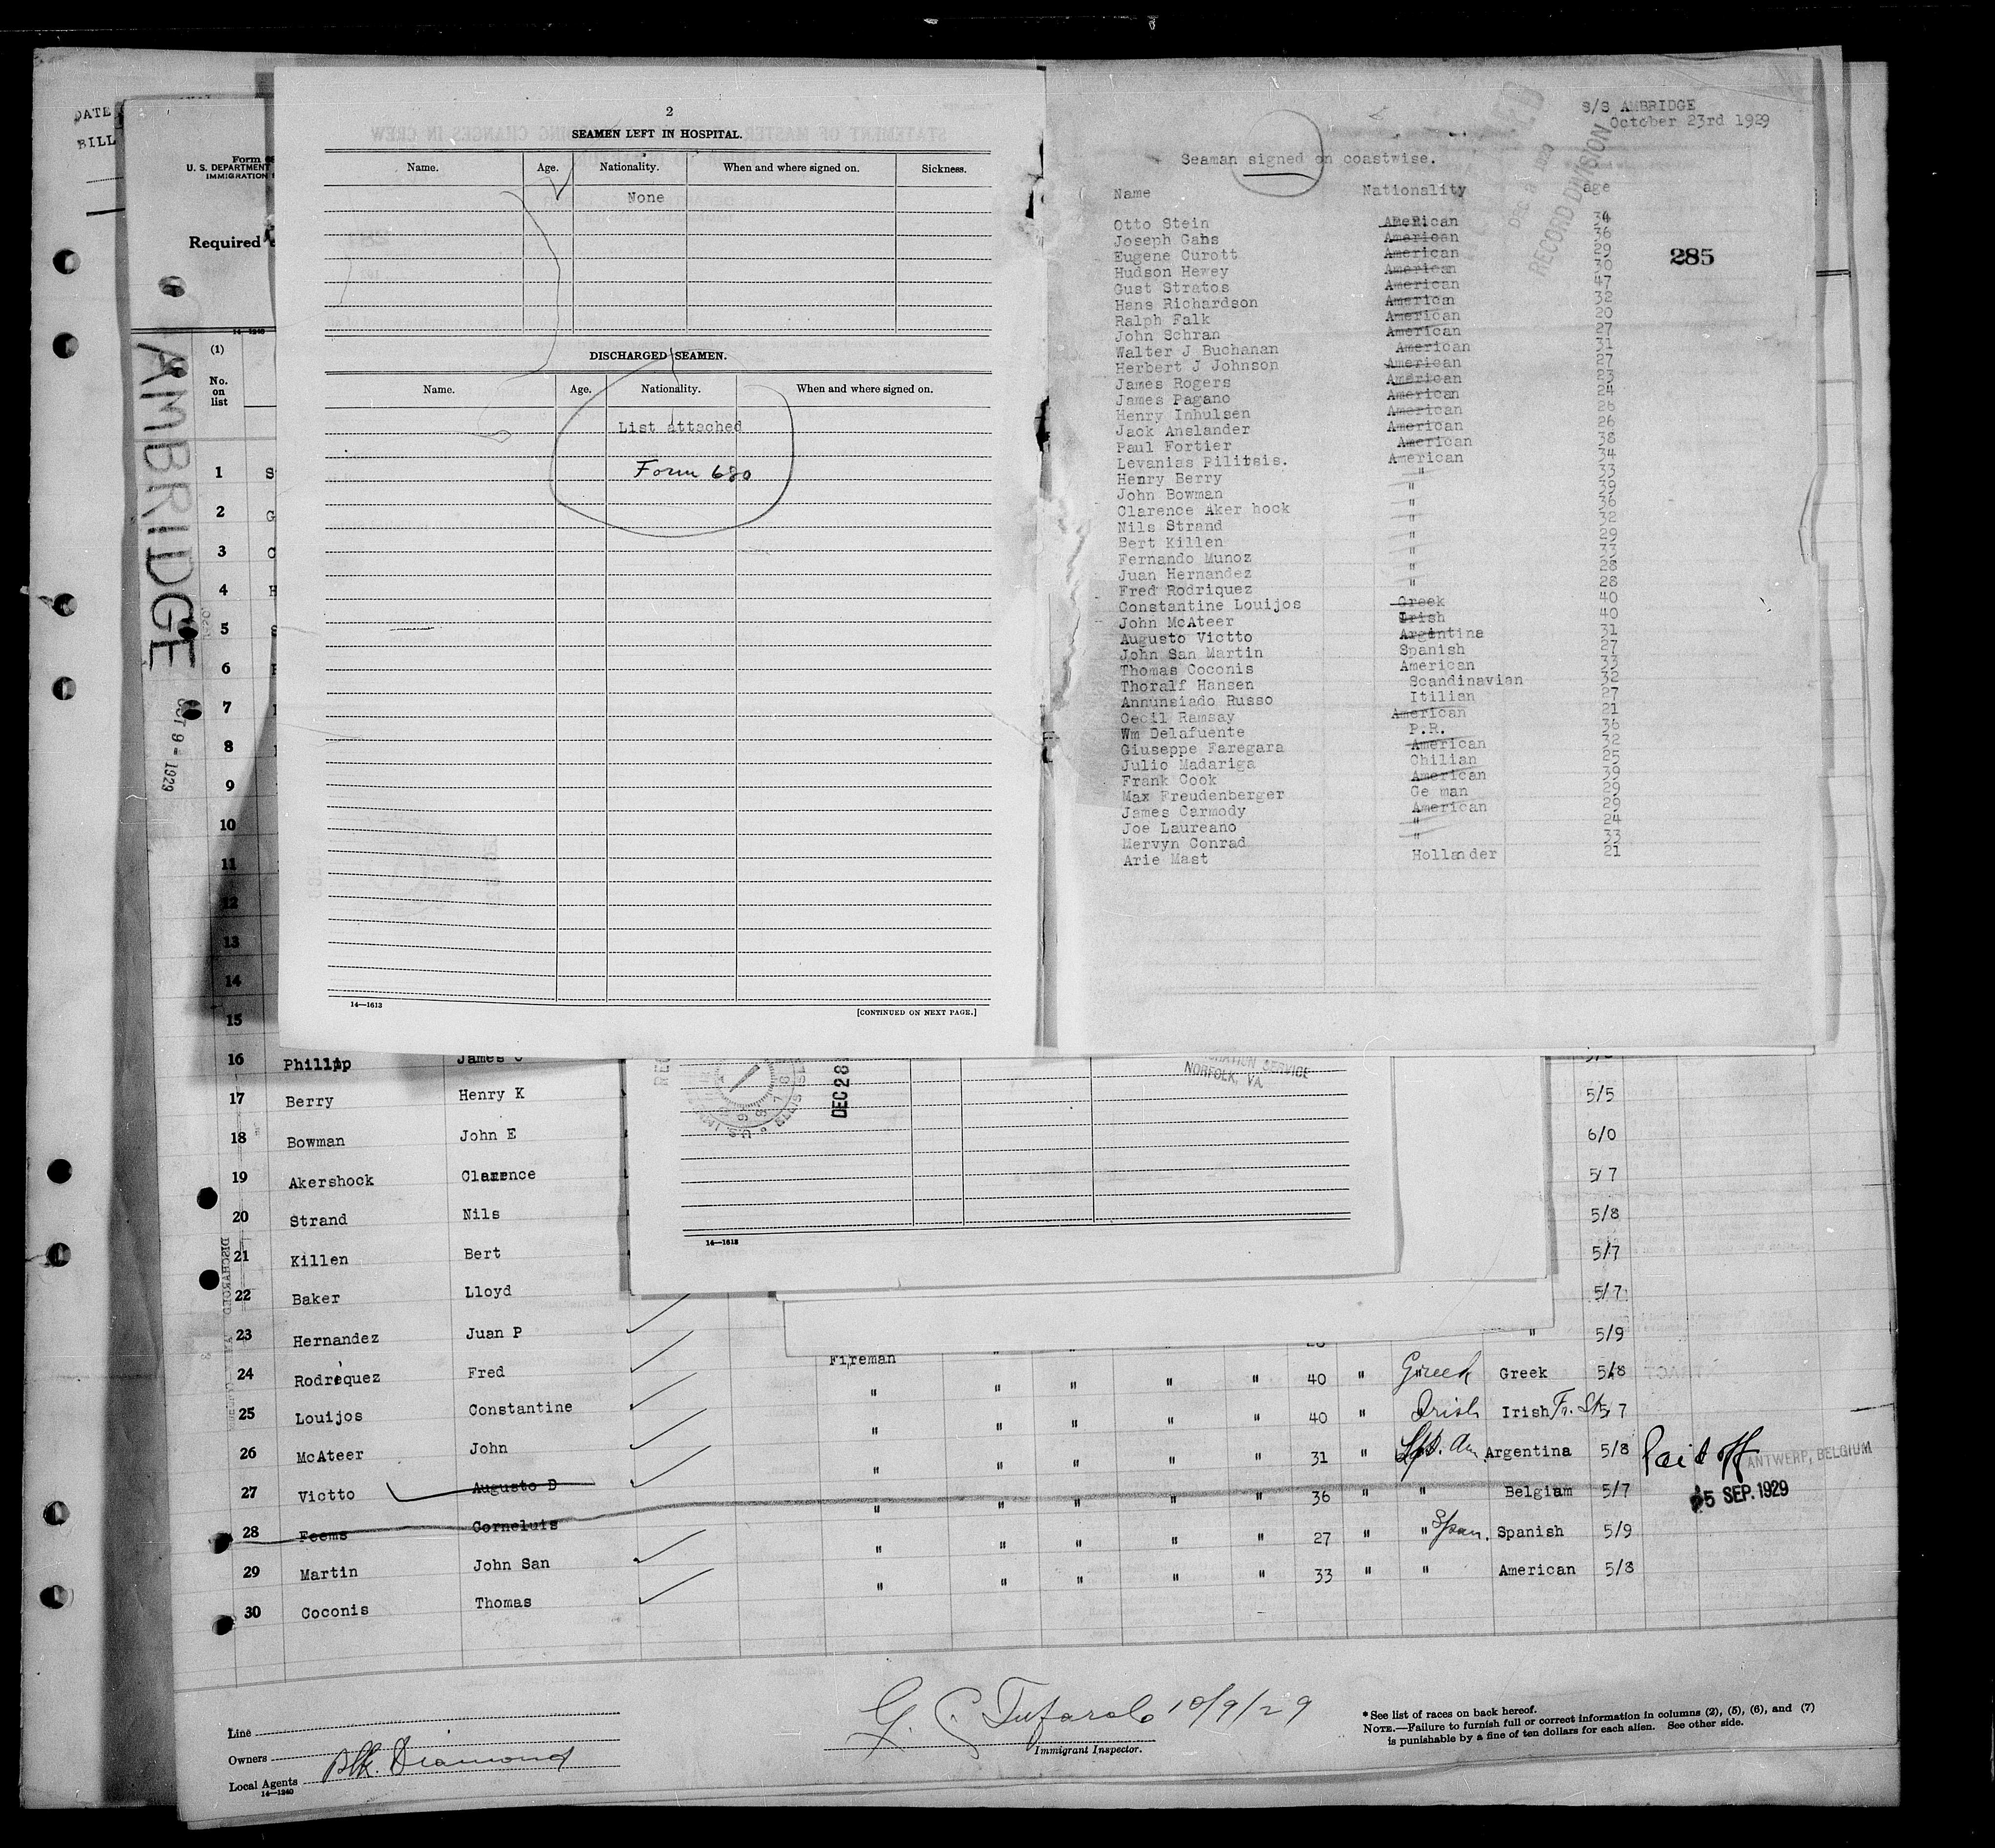 DATE
BILL
Form
U. S. DEPARTMENT
IMMIGRATION
Required
14—1240
(1)
No. on list
AMBRIDGE
OCT 9 - 1929
1 S
2 G
3 C
4 H
5 S
6
7
8
9
10
11
12
13
14
15
2
SEAMEN LEFT IN HOSPITAL.
Name. Age. Nationality. When and where signed on. Sickness.
None
DISCHARGED SEAMEN.
Name. Age. Nationality. When and where signed on.
List attached
Form 680
14—1613
[CONTINUED ON NEXT PAGE.]
S/S AMBRIDGE
October 23rd 1929
RECORD DIVISION
Seaman signed on coastwise.
Name Nationality age
285
Otto Stein American 34
Joseph Gahs American 36
Eugene Curott American 29
Hudson Hewey American 30
Gust Stratos American 47
Hans Richardson American 32
Ralph Falk American 20
John Schran American 27
Walter J Buchanan American 31
Herbert J Johnson American 27
James Rogers American 23
James Pagano American 24
Henry Inhulsen American 26
Jack Anslander American 26
Paul Fortier American 38
Levanias Pilitsis. American 34
Henry Berry " 33
John Bowman " 39
Clarence Aker hock " 36
Nils Strand " 32
Bert Killen " 29
Fernando Munoz " 33
Juan Hernandez " 28
Fred Rodriquez " 28
Constantine Louijos Greek 40
John McAteer Irish 40
Augusto Victto Argentina 31
John San Martin Spanish 27
Thomas Coconis American 33
Thoralf Hansen Scandinavian 32
Annunsiado Russo Itilian 27
Cecil Ramsay American 21
Wm Delafuente P.R. 36
Giuseppe Faregara American 32
Julio Madariga Chilian 25
Frank Cook American 39
Max Freudenberger Ge man 29
James Carmody American 29
Joe Laureano " 24
Mervyn Conrad " 33
Arie Mast Hollander 21
DEC 28
SERVICE
NORFOLK, VA.
14—1613
16 Phillip James
17 Berry Henry K 5/5
18 Bowman John E 6/0
19 Akershock Clarence 5/7
20 Strand Nils 5/8
21 Killen Bert 5/7
22 Baker Lloyd 5/7
23 Hernandez Juan P " 5/9
24 Rodriquez Fred Fireman
" " " " " 40 " Greek Greek 5/8
25 Louijos Constantine
" " " " " 40 " Irish Irish 5/7
26 McAteer John
" " " " " 31 " Argentina 5/8
27 Victto Augusto D
" " " " " 36 " " Belgiam 5/7
Paid off ANTWERP, BELGIUM
SEP. 1929
28 Feems Corneluis
" " " " " 27 " " Span. Spanish 5/9
29 Martin John San
" " " " " 33 " " American 5/8
30 Coconis Thomas
Line
Owners
Local Agents Blk. Diamond
14—1240
10/9/29
Immigrant Inspector.
* See list of races on back hereof.
NOTE.—Failure to furnish full or correct information in columns (2), (5), (6), and (7)
is punishable by a fine of ten dollars for each alien. See other side.